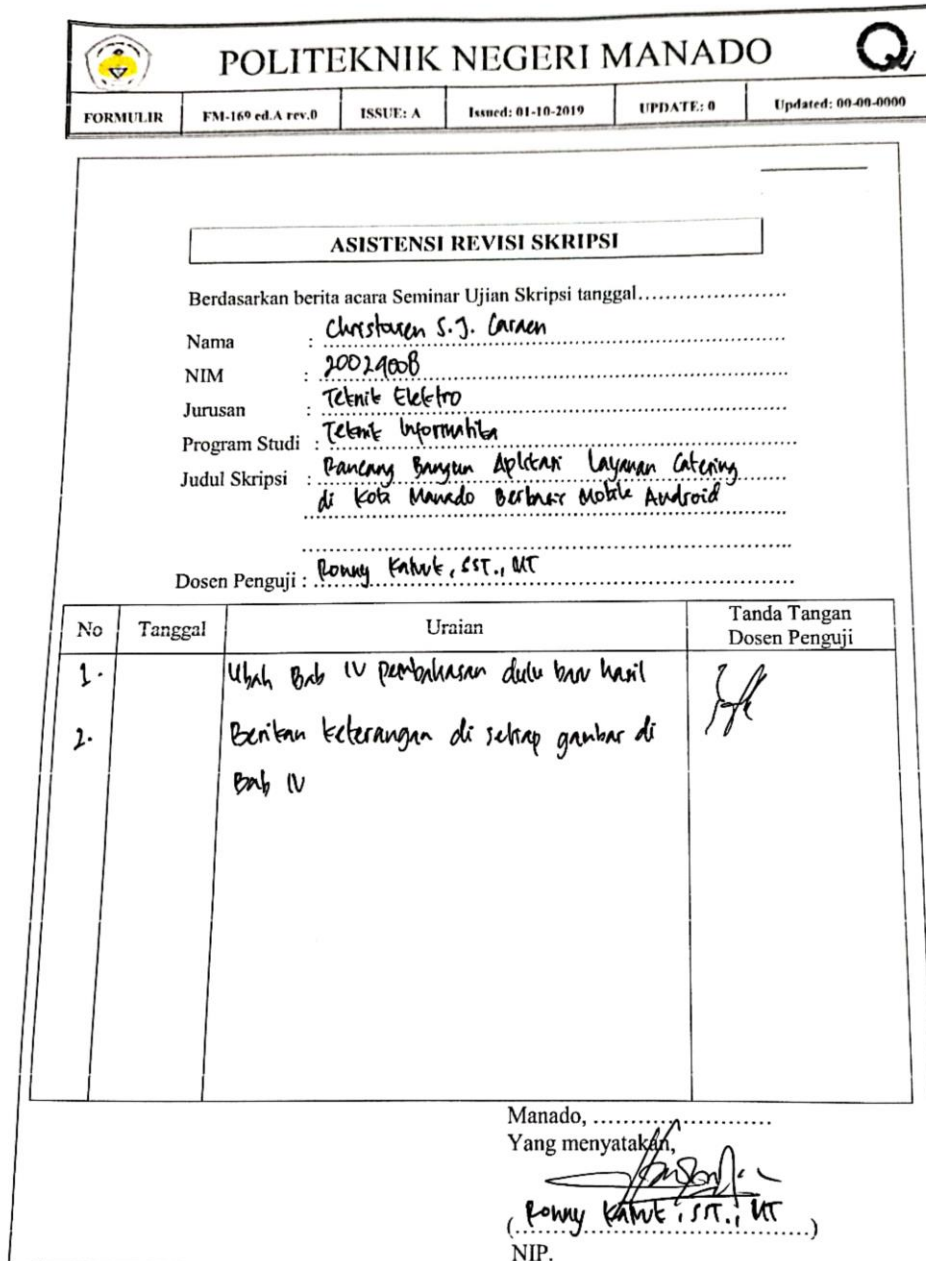 POLITEKNIK NEGERI MANADO
FORMULIR FM-169 ed.A rev.0 ISSUE: A Issued: 01-10-2019 UPDATE: 0 Updated: 00-00-0000
ASISTENSI REVISI SKRIPSI
Berdasarkan berita acara Seminar Ujian Skripsi tanggal......................
Nama : S.J.
NIM :
Jurusan : Teknik Elektro
Program Studi : Teknik Informatika
Judul Skripsi : Rancang Bangun Aplikasi Layanan Catering
di Kota Manado Berbasis Mobile Android
Dosen Penguji : Ronny Katuuk, SST., MT
No Tanggal Uraian Tanda Tangan
Dosen Penguji
1. Ubah Bab IV pembahasan dulu baru hasil
2. Berikan keterangan di setiap gambar di
Bab IV
Manado, ..........................
Yang menyatakan,
(Ronny Katuuk, SST., MT)
NIP.